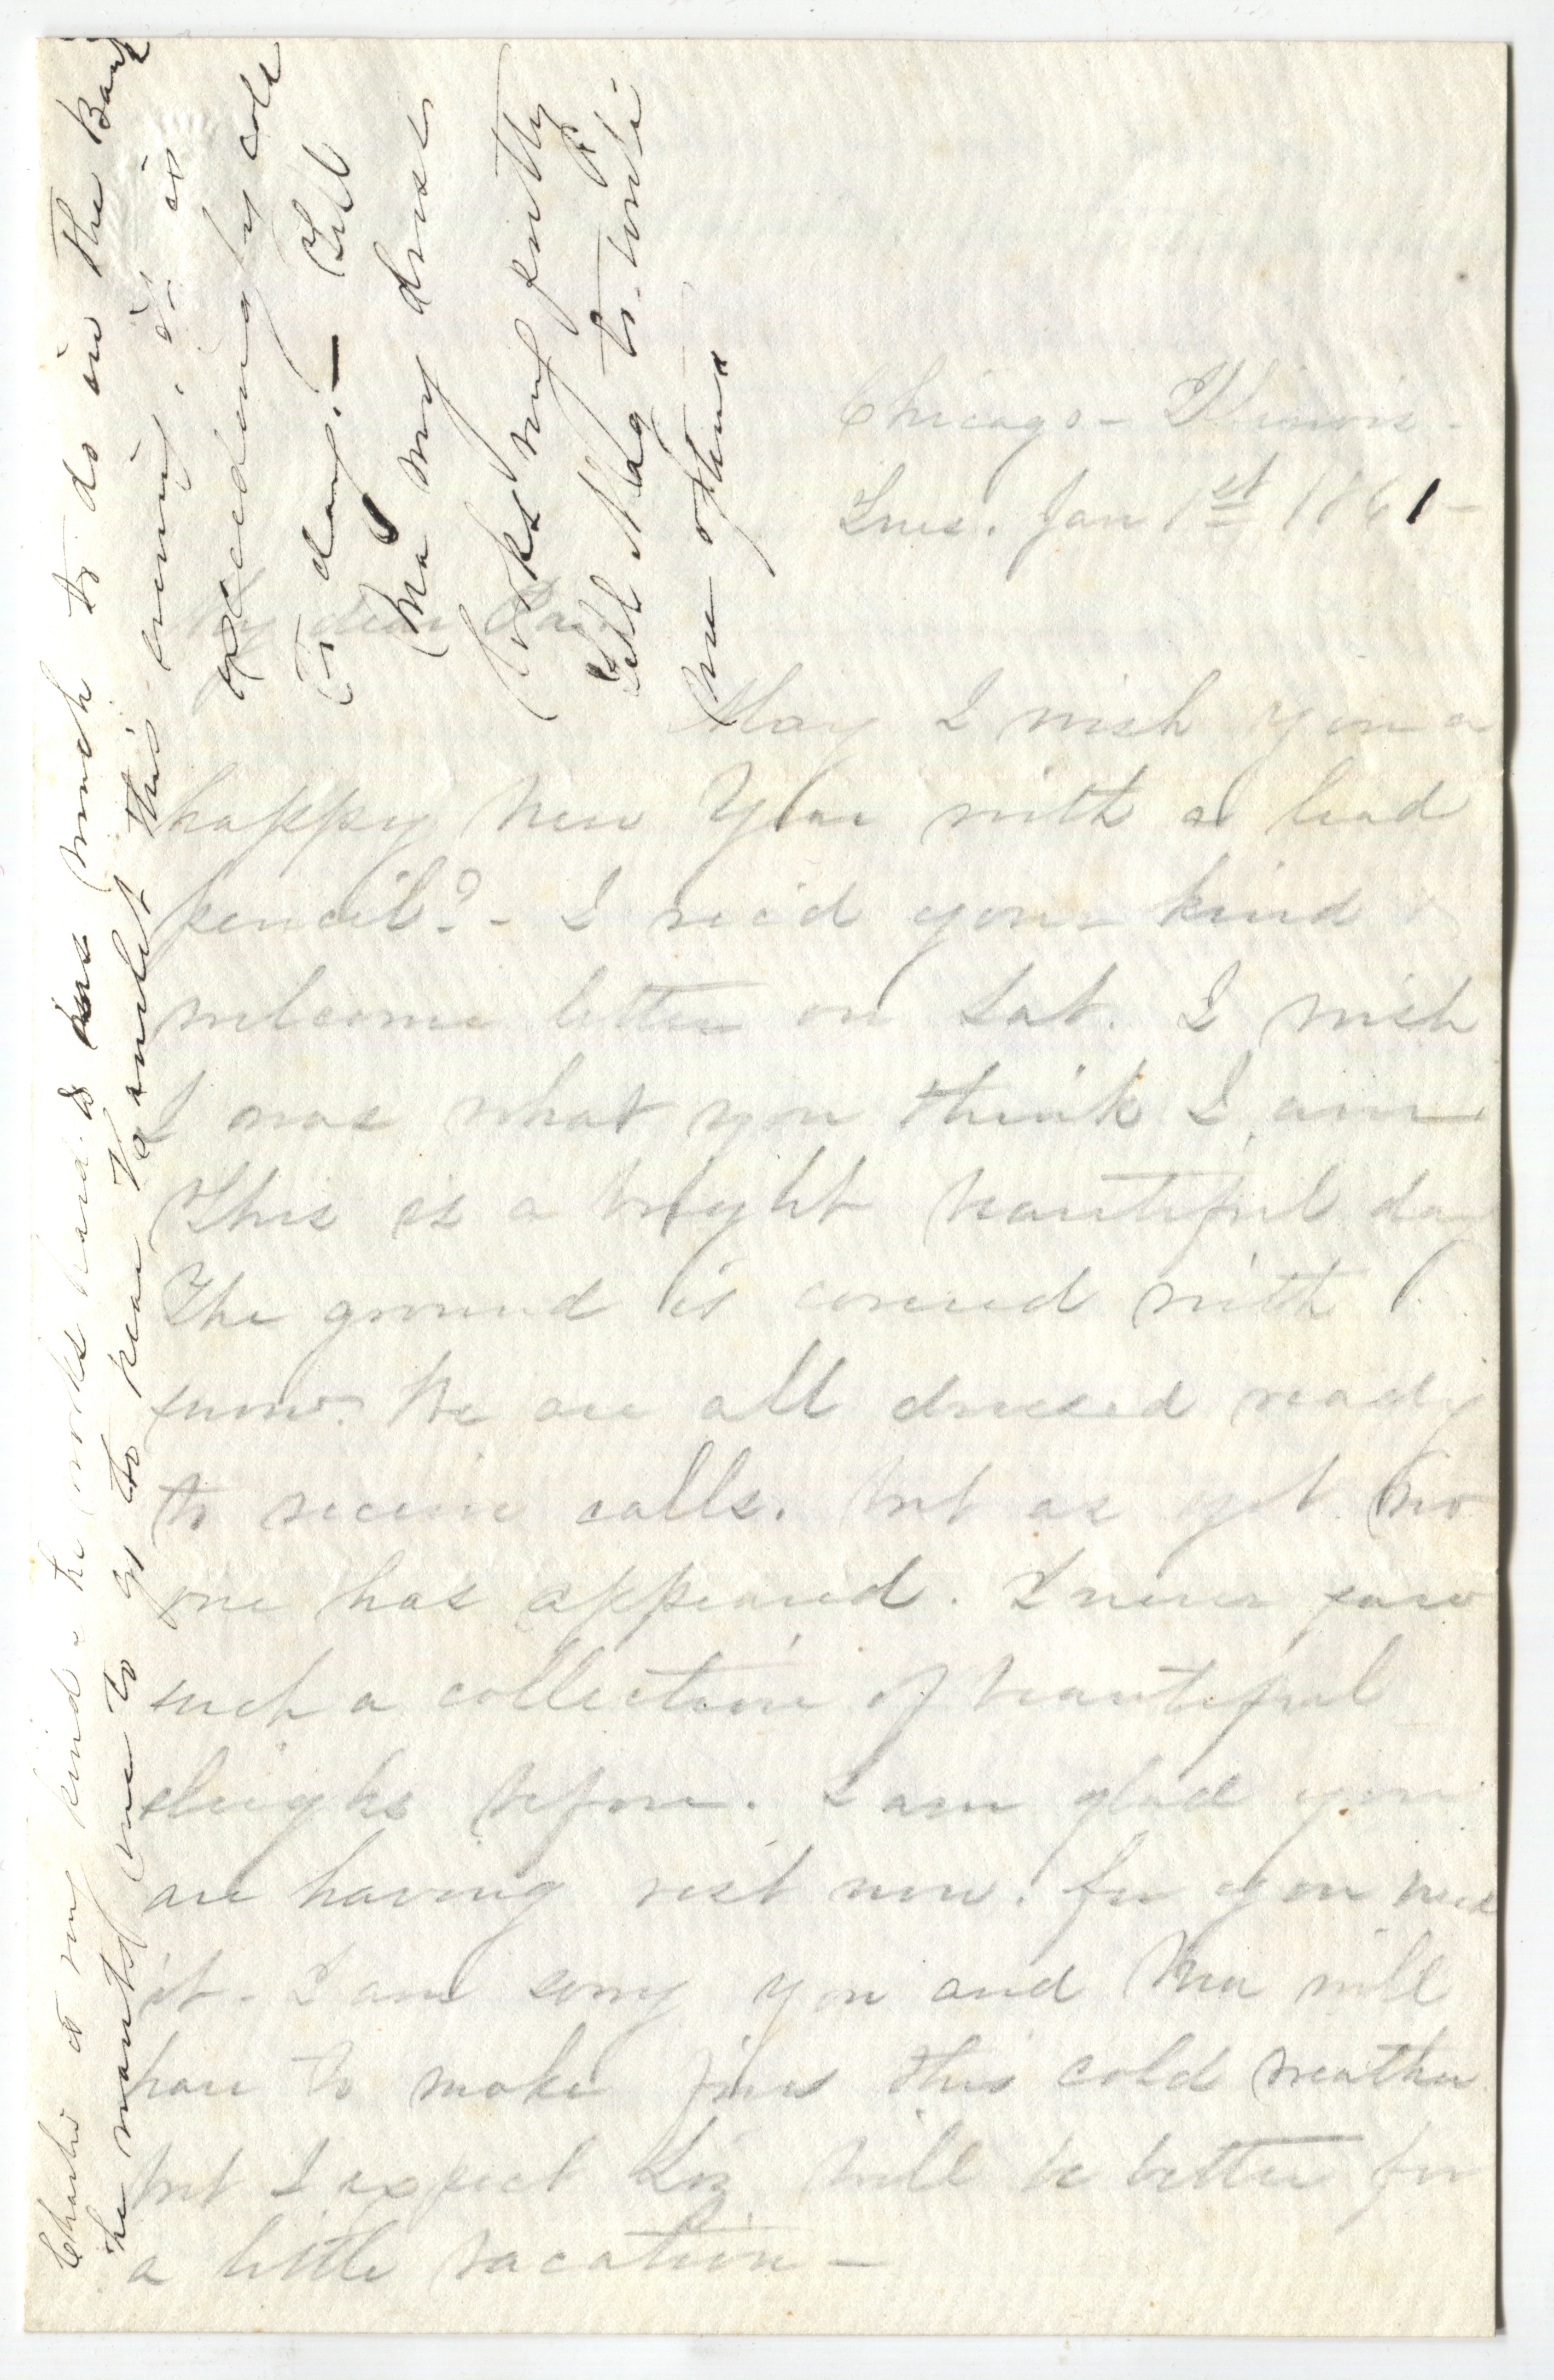 Chicago - Illinois -
Tues. Jan 1st 1861 -
My dear Pa,
May I wish you a
happy New Year with a lead
pencil? - I rec'd your kind
welcome letter on Sat. I wish
I was what you think I am
This is a bright beautiful day
The ground is covered with
snow. We are all dressed ready
to receive calls. but as yet no
one has appeared. I never saw
such a collection of beautiful
sleighs before. I am glad you
are having rest now. for you need
it - I am sorry you and Ma will
have to make fires this cold weather
but I expect Liz will be better for
a little vacation -
Charlie is very kind - he works hard & has much to do in the Bank
he wanted me to go to hear Hamlet this evening. It is
exceedingly cold
to day. - Tell
Ma my dress
looks very pretty
Tell Mag to write
me often